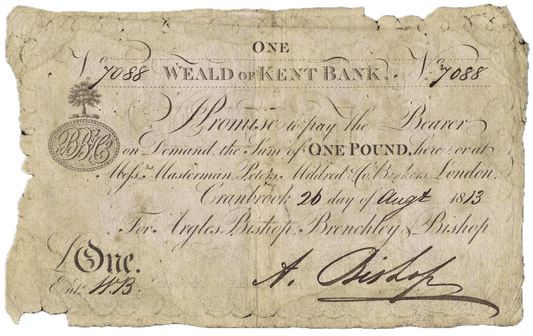 ONE
No 7088 WEALD OF KENT BANK. No 7088
I Promise to pay the Bearer
on Demand the Sum of ONE POUND, here or at
Messrs Masterman Peters Mildred & Co. Bankers London.
Cranbrook 26 day of Augt 1813
For Argles Bishop, Brenchley & Bishop
£One.
Entd WB. A. Bishop